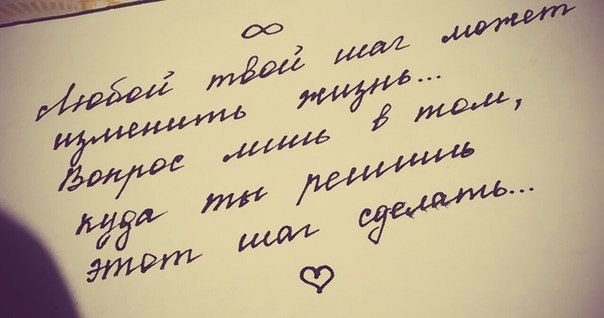 ∞
Любой твой шаг может
изменить жизнь...
Вопрос лишь в том,
куда ты решишь
этот шаг сделать...
♡